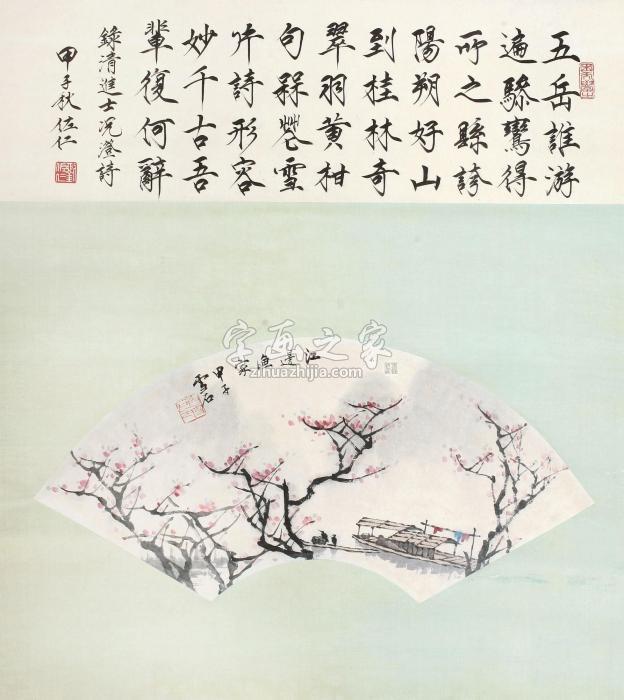 五岳誰游
遍驂鸞得
所之縣誇
陽朔好山
到桂林奇
翠羽黃柑
句槑花雪
片詩形容
妙千古吾
輩復何辭
錄清進士況澄詩
甲子秋位仁
江邊漁家
甲子
雪石
字画之家
zihuazhijia.com